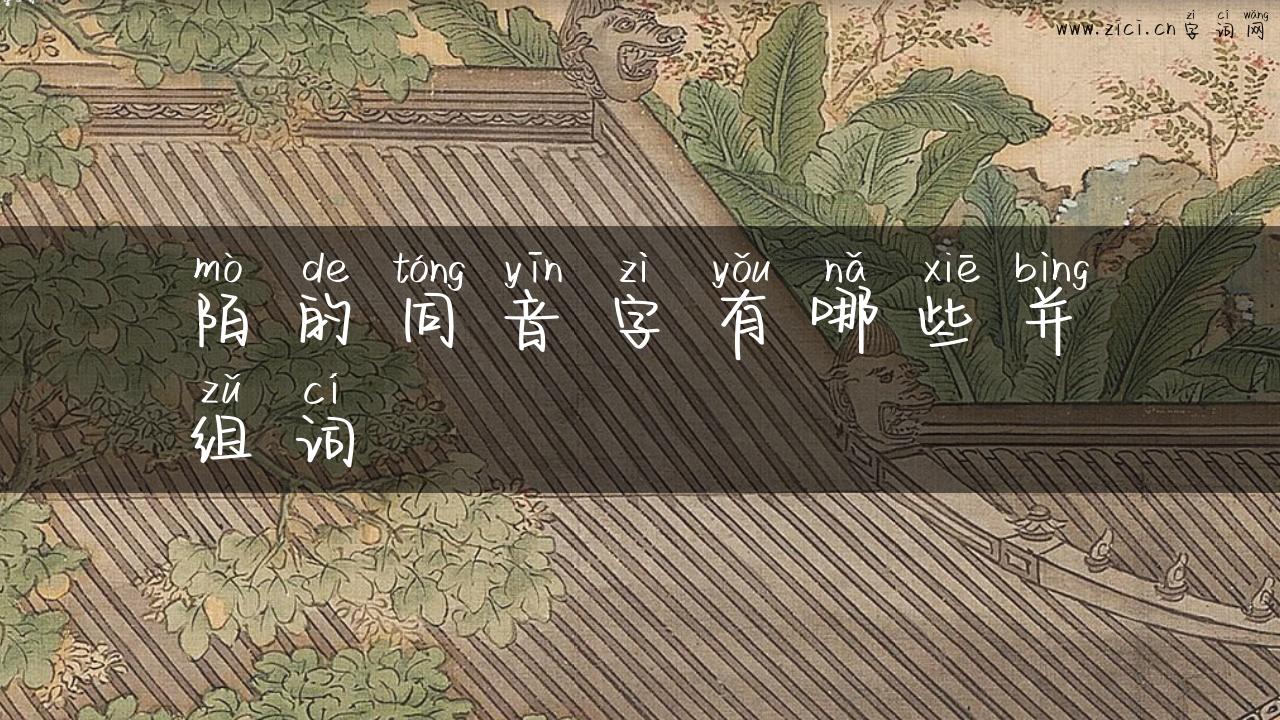 zì cí wǎng
www.zici.cn 字 词 网
mò de tóng yīn zì yǒu nǎ xiē bìng
陌 的 同 音 字 有 哪 些 并
zǔ cí
组 词